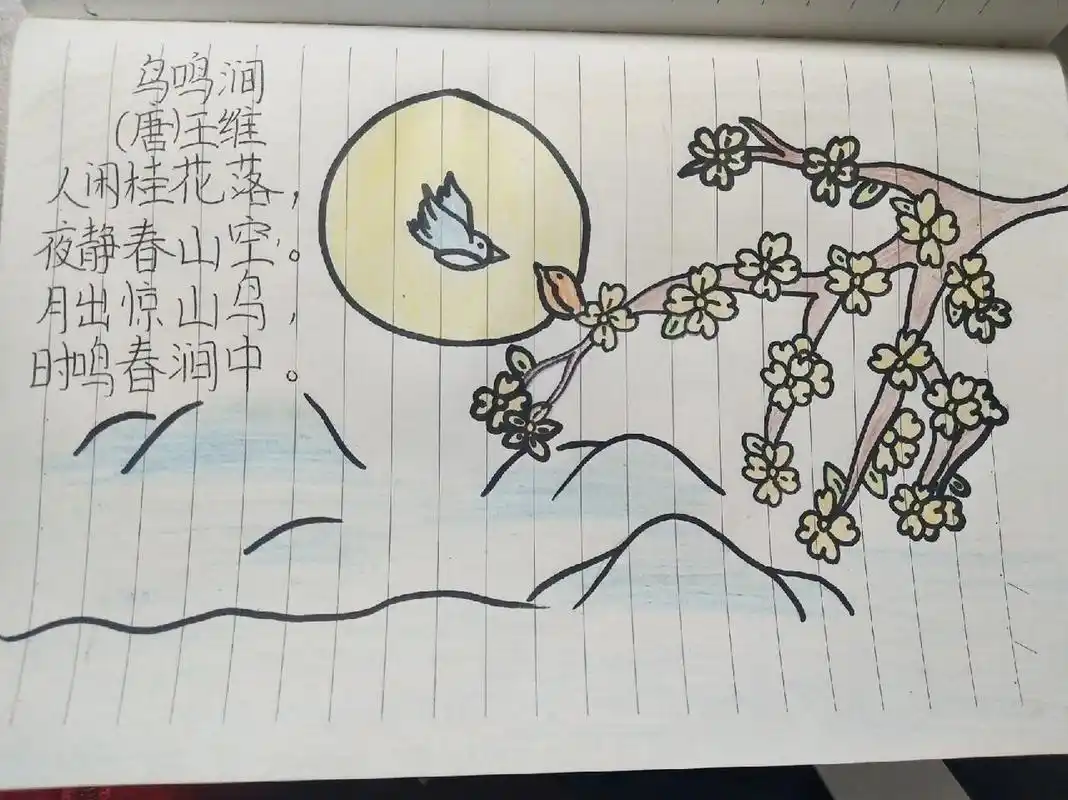 鸟鸣涧
(唐)王维
人闲桂花落，
夜静春山空。
月出惊山鸟，
时鸣春涧中。